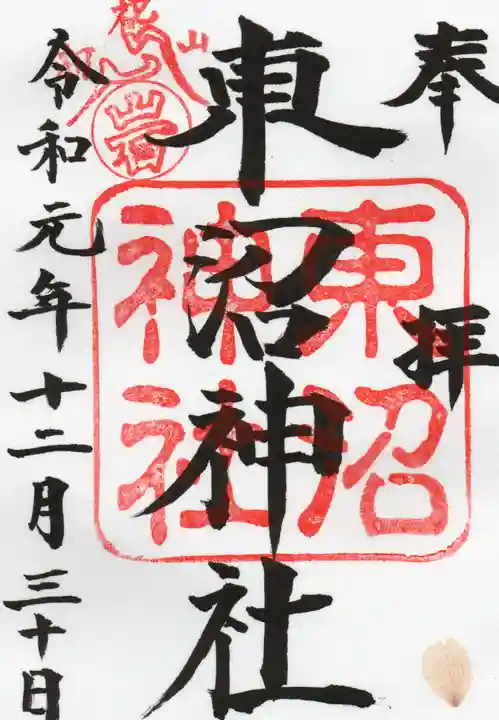 奉拝
東沼神社
令和元年十二月三十日
東沼
神社
岩
根
山